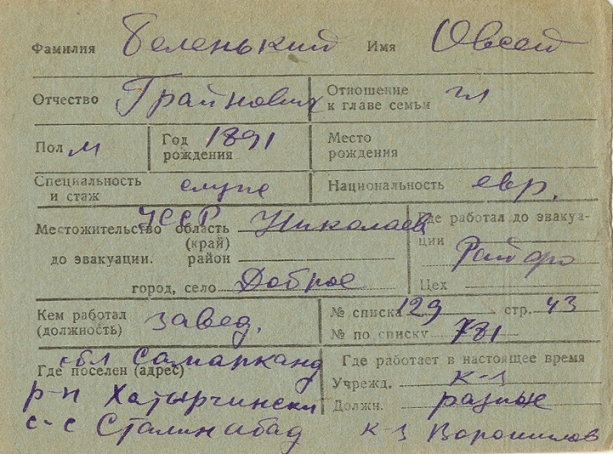 Фамилия Беленький Имя Овсей
Отчество Отношение к главе семьи гл
Пол м Год рождения 1891 Место рождения
Специальность и стаж служ Национальность евр.
Местожительство до эвакуации. УССР область (край) Николаев район
город, село Доброе
Где работал до эвакуации Райфо
Цех
Кем работал (должность) завед.
№ списка 129 стр. 43
№ по списку 781
Где поселен (адрес) обл Самарканд
р-н Хатырчински
с-с Сталинабад к-з Ворошилов
Где работает в настоящее время
Учрежд. к-з
Должн.